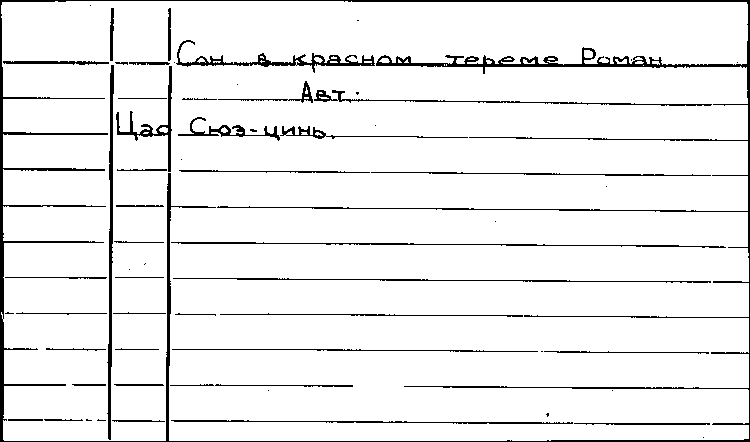 Сон в красном тереме Роман
Авт.
Цао Сюэ-цинь.